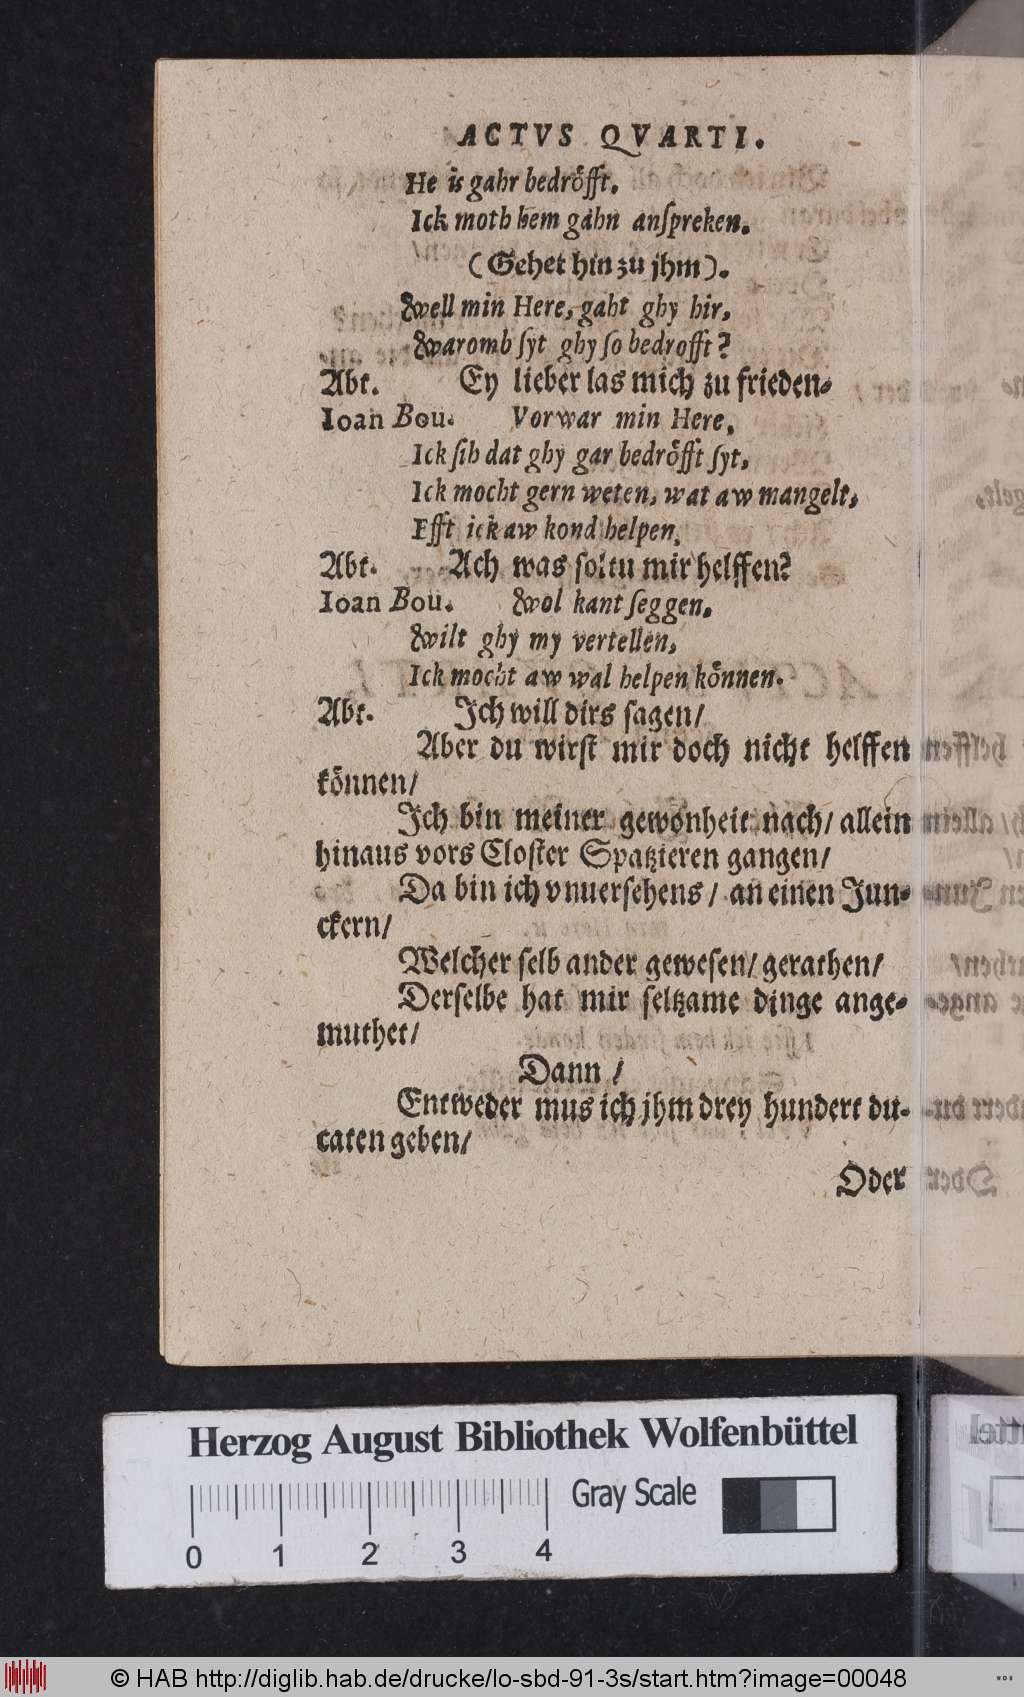 ACTVS QVARTI.
He is gahr bedröfft.
Ick moth hem gahn anſpreken.
(Gehet hin zu jhm).
Well min Here, gaht ghy hir,
Waromb ſyt ghy ſo bedrofft?
Abt. Ey lieber las mich zu frieden.
Ioan Bou. Vorwar min Here,
Ick ſih dat ghy gar bedröfft ſyt,
Ick mocht gern weten, wat aw mangelt,
Efft ick aw kond helpen.
Abt. Ach was ſoltu mir helffen?
Ioan Bou. Wol kant ſeggen.
Wilt ghy my vertellen,
Ick mocht aw wal helpen können.
Abt. Jch will dirs ſagen/
Aber du wirſt mir doch nicht helffen
können/
Jch bin meiner gewonheit nach/ allein
hinaus vors Cloſter Spatzieren gangen/
Da bin ich vnuerſehens/ an einen Jun-
ckern/
Welcher ſelb ander geweſen/ gerathen/
Derſelbe hat mir ſeltzame dinge ange-
muthet/
Dann /
Entweder mus ich jhm drey hundert du-
caten geben/
Oder
Herzog August Bibliothek Wolfenbüttel
Gray Scale
0 1 2 3 4
© HAB http://diglib.hab.de/drucke/lo-sbd-91-3s/start.htm?image=00048